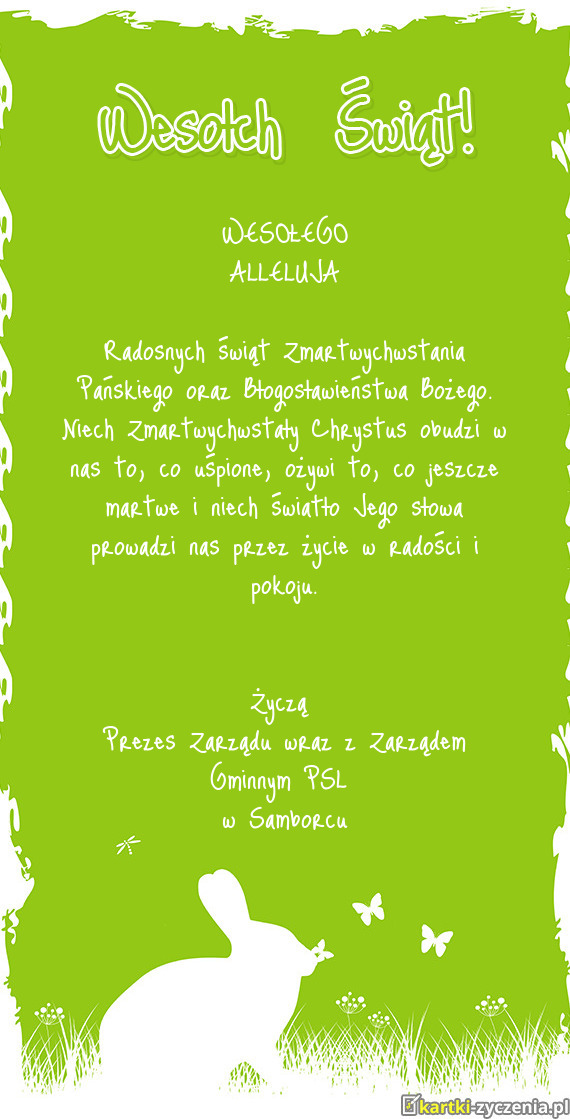 Wesołch Świąt!
WESOŁEGO
ALLELUJA
Radosnych świąt Zmartwychwstania
Pańskiego oraz Błogosławieństwa Bożego.
Niech Zmartwychwstały Chrystus obudzi w
nas to, co uśpione, ożywi to, co jeszcze
martwe i niech światło Jego słowa
prowadzi nas przez życie w radości i
pokoju.
Życzą
Prezes Zarządu wraz z Zarządem
Gminnym PSL
w Samborcu
kartki-zyczenia.pl